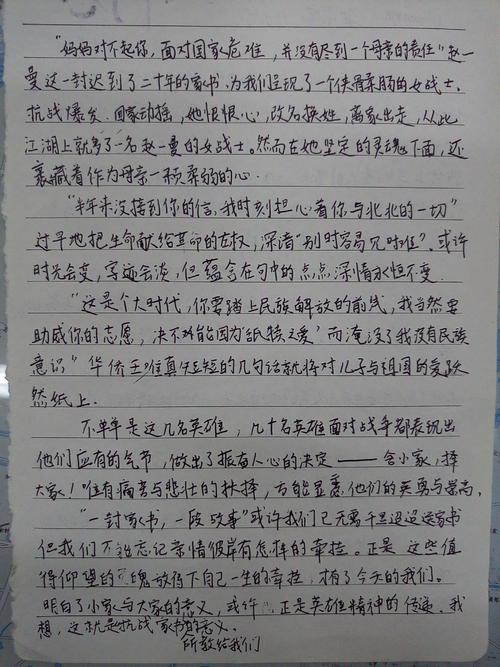 “妈妈对不起你，面对国家危难，并没有尽到一个母亲的责任”赵一
曼这一封迟到了二十年的家书，为我们呈现了一个侠骨柔肠的女战士。
抗战爆发，国家动摇，她恨恨心，改名换姓，离家出走，从此
江湖上就多了一名赵一曼的女战士。然而在她坚定的灵魂下面，还
裹藏着作为母亲一颗柔弱的心.
“半年来没接到你的信，我时刻担心着你与北北的一切”
过早地把生命献给革命的左权，深谙“别时容易见时难”，或许
时光会变，字迹会淡，但蕴含在句中的点点深情永恒不变.
“这是个大时代，你要踏上民族解放的前线，我当然要
助成你的志愿，决不能因为‘舐犊之爱’而淹没了我没有民族
意识”华侨王唯真短短的几句话就将对儿子与祖国的爱跃
然纸上.
不单单是这几名英雄，几十名英雄面对战争都表现出
他们应有的气节，做出了振奋人心的决定——舍小家，择
大家！惟有痛苦与悲壮的抉择，方能显露他们的英勇与崇高.
“一封家书，一段故事”或许我们已无需千里迢迢送家书
但我们不能忘记亲情彼岸有怎样的牵挂。正是这些值
得仰望的 魂放得下自己一生的牵挂，才有了今天的我们。
明白了小家与大家的意义，或许 正是英雄精神的传递。我
想，这就是抗战家书的意义.
所教给我们